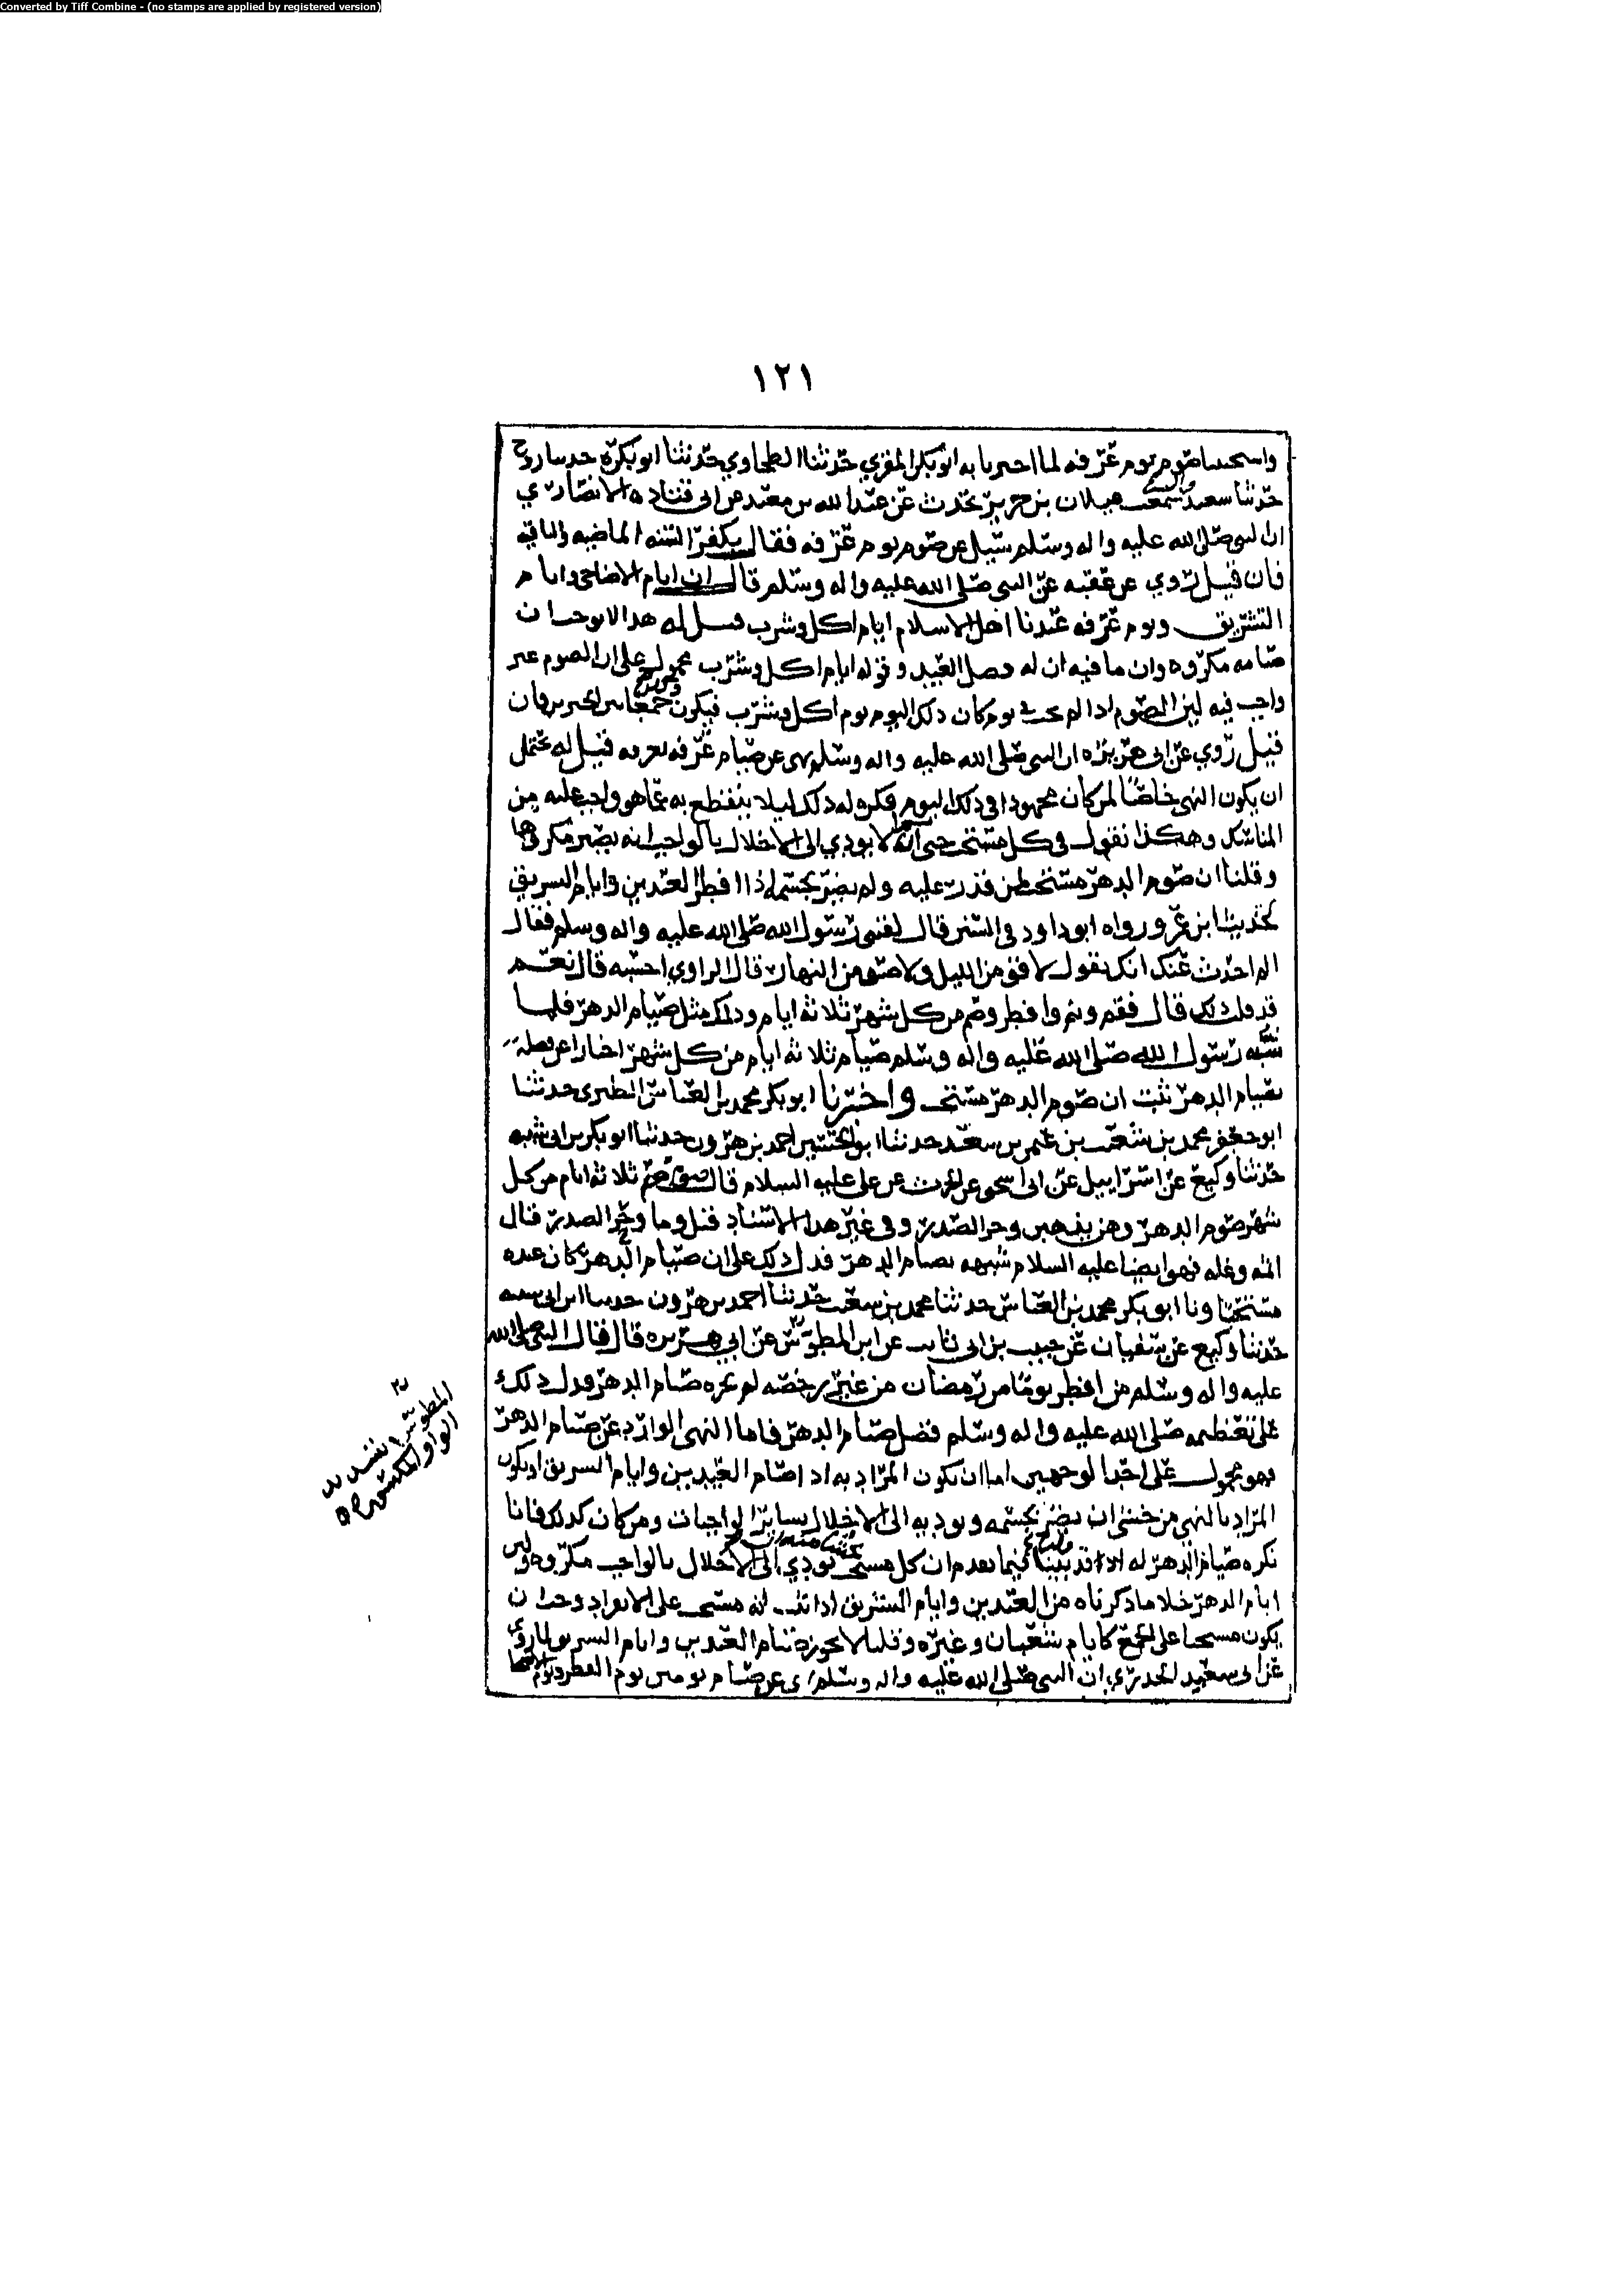 Converted by Tiff Combine - (no stamps are applied by registered version)
١٢١
واستحببنا صوم يوم عرفه لما اخبرنا به ابو بكر المقري حدثنا الطحاوي حدثنا ابو بكرة حدثنا روح
حدثنا سعيد سمعت غيلان بن جرير يحدث عن عبد الله بن معبد عن ابي قتاده الانصاري
ان النبي صلى الله عليه واله وسلم سئل عن صوم يوم عرفه فقال يكفر السنه الماضيه والباقيه
فان قيل روي عن عقبه عن النبي صلى الله عليه واله وسلم قال ان ايام الاضاحي وايام
التشريق ويوم عرفه عيدنا اهل الاسلام ايام اكل وشرب قيل له هذا لا يوجب ان
صيامه مكروه وان ما فيه ان له فضل العيد وقوله ايام اكل وشرب محمول على ان الصوم غير
واجب فيه لان الصوم اذا لم يجب في يوم كان ذلك اليوم يوم اكل وشرب فيكون جمعا بين الخبرين فان
قيل روي عن ابي هريره ان النبي صلى الله عليه واله وسلم نهى عن صيام عرفه بعرفه قيل له يحتمل
ان يكون النهي خاصا لمن كان مجهودا في ذلك اليوم فكره له ذلك ليلا ينقطع به عما هو واجب عليه من
المناسك وهكذا نقول في كل مستحب انه لا يودي الى الاخلال بالواجب انه يصير مكروها
وقلنا ان صوم الدهر مستحب لمن قدر عليه ولم يضر بجسمه اذا افطر العيدين وايام التشريق
لحديث ابن عمر ورواه ابو داود في السنن قال لقيني رسول الله صلى الله عليه واله وسلم فقال
الم احدث عنك انك تقول لاقومن الليل ولاصومن النهار قال الراوي احسبه قال نعم
قد قلت ذلك قال فقم ونم وافطر وصم من كل شهر ثلاثه ايام وذلك مثل صيام الدهر فلما
شبه رسول الله صلى الله عليه واله وسلم صيام ثلاثه ايام من كل شهر اخبارا عن فضله
بصيام الدهر ثبت ان صوم الدهر مستحب واخبرنا ابو بكر محمد بن العباس الطبري حدثنا
ابو جعفر محمد بن شعيب بن سعيد حدثنا ابو الحسين احمد بن هرون حدثنا ابو بكر بن ابي شيبه
حدثنا وكيع عن اسراييل عن ابي اسحق عن الحرث عن علي عليه السلام قال صوم ثلاثه ايام من كل
شهر صوم الدهر وهن يذهبن وحر الصدر وفي غير هذا الاسناد قيل وما وحر الصدر قال
اثمه وغله فهو ايضا عليه السلام شبهه بصيام الدهر فدل ذلك على ان صيام الدهر كان عنده
مستحبا ونا ابو بكر محمد بن العباس حدثنا محمد بن شعيب حدثنا احمد بن هرون حدثنا ابن ابي شيبه
حدثنا وكيع عن سفيان عن حبيب بن ابي ثابت عن ابن المطوس عن ابي هريره قال قال النبي صلى الله
عليه واله وسلم من افطر يوما من رمضان من غير رخصه لم يجزه صيام الدهر فدل ذلك
على تعظيمه صلى الله عليه واله وسلم فضل صيام الدهر فاما النهي الوارد عن صيام الدهر
فهو محمول على احد الوجهين اما ان يكون المراد به اذا صام العيدين وايام التشريق او يكون
المراد بالنهي من خشي ان يضر بجسمه ويوديه الى الاخلال بساير الواجبات ومن كان كذلك فانا
نكره صيام الدهر له اذ قد بينا فيما تقدم ان كل مستحب يودي الى الاخلال بالواجب مكروه وليس
ايام الدهر خلا ما ذكرناه من العيدين وايام التشريق اذا ثبت انه مستحب على الانفراد وجب ان
يكون مستحبا على الجمع كايام شعبان وغيره وقلنا لا يجوز صيام العيدين وايام التشريق لما روي
عن ابي سعيد الخدري ان النبي صلى الله عليه واله وسلم نهى عن صيام يومين يوم الفطر ويوم الاضحى
المطوس بتشديد
الواو المكسوره